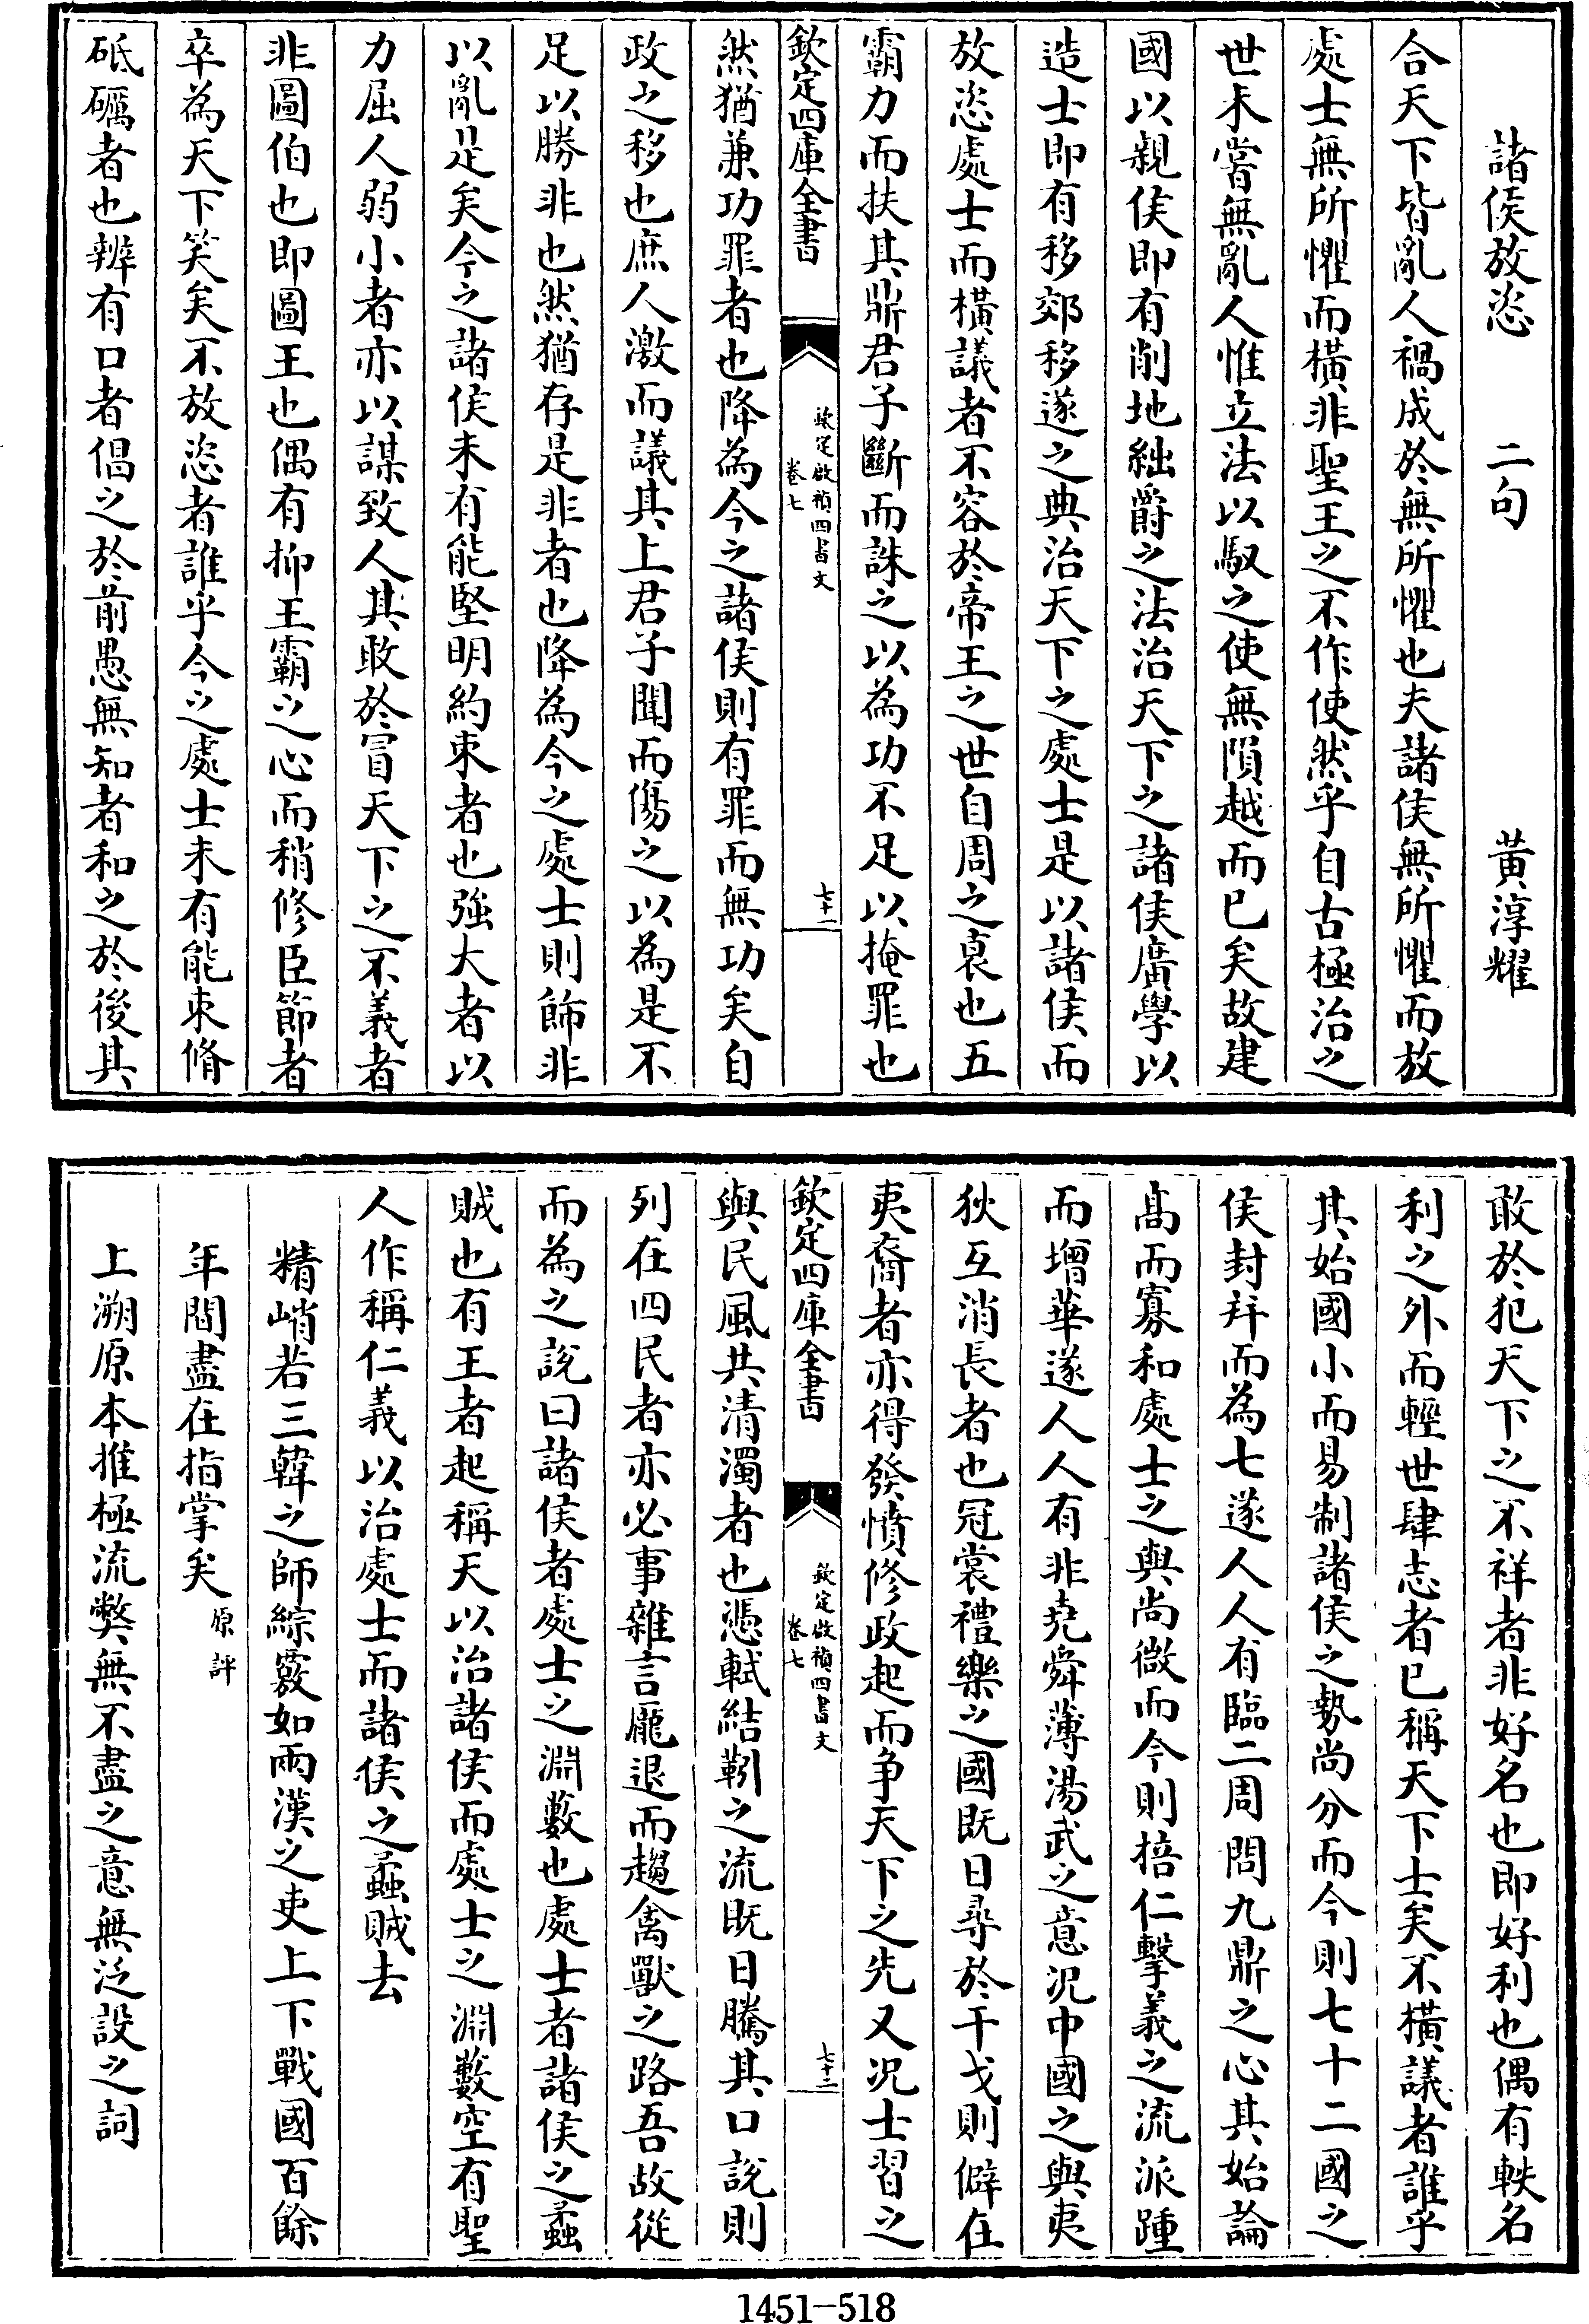 諸侯放恣　二句　黄淳耀
合天下皆亂人禍成於無所懼也夫諸侯無所懼而放
處士無所懼而橫非聖王之不作使然乎自古極治之
世未嘗無亂人惟立法以馭之使無隕越而已矣故建
國以親侯即有削地絀爵之法治天下之諸侯廣學以
造士即有移郊移遂之典治天下之處士是以諸侯而
放恣處士而橫議者不容於帝王之世自周之衰也五
霸力而扶其鼎君子斷而誅之以為功不足以掩罪也
欽定四庫全書
欽定啟禎四書文
卷七
七十一
然猶兼功罪者也降為今之諸侯則有罪而無功矣自
政之移也庶人激而議其上君子聞而傷之以為是不
足以勝非也然猶存是非者也降為今之處士則飾非
以亂是矣今之諸侯未有能堅明約束者也強大者以
力屈人弱小者亦以謀致人其敢於冒天下之不義者
非圖伯也即圖王也偶有抑王霸之心而稍修臣節者
卒為天下笑矣不放恣者誰乎今之處士未有能束脩
砥礪者也辨有口者倡之於前愚無知者和之於後其
敢於犯天下之不祥者非好名也即好利也偶有軼名
利之外而輕世肆志者已稱天下士矣不橫議者誰乎
其始國小而易制諸侯之勢尚分而今則七十二國之
侯封并而為七遂人人有臨二周問九鼎之心其始論
髙而寡和處士之與尚微而今則掊仁擊義之流派踵
而增華遂人人有非堯舜薄湯武之意況中國之與夷
狄互消長者也冠裳禮樂之國既日尋於干戈則僻在
夷裔者亦得發憤修政起而争天下之先又況士習之
欽定四庫全書
欽定啟禎四書文
卷七
七十二
與民風共清濁者也憑軾結靷之流既日騰其口說則
列在四民者亦必事雜言龐退而趨禽獸之路吾故從
而為之說曰諸侯者處士之淵藪也處士者諸侯之蟊
賊也有王者起稱天以治諸侯而處士之淵藪空有聖
人作稱仁義以治處士而諸侯之蟊賊去
精峭若三韓之師綜覈如兩漢之吏上下戰國百餘
年間盡在指掌矣原評
上溯原本推極流弊無不盡之意無泛設之詞
1451-518